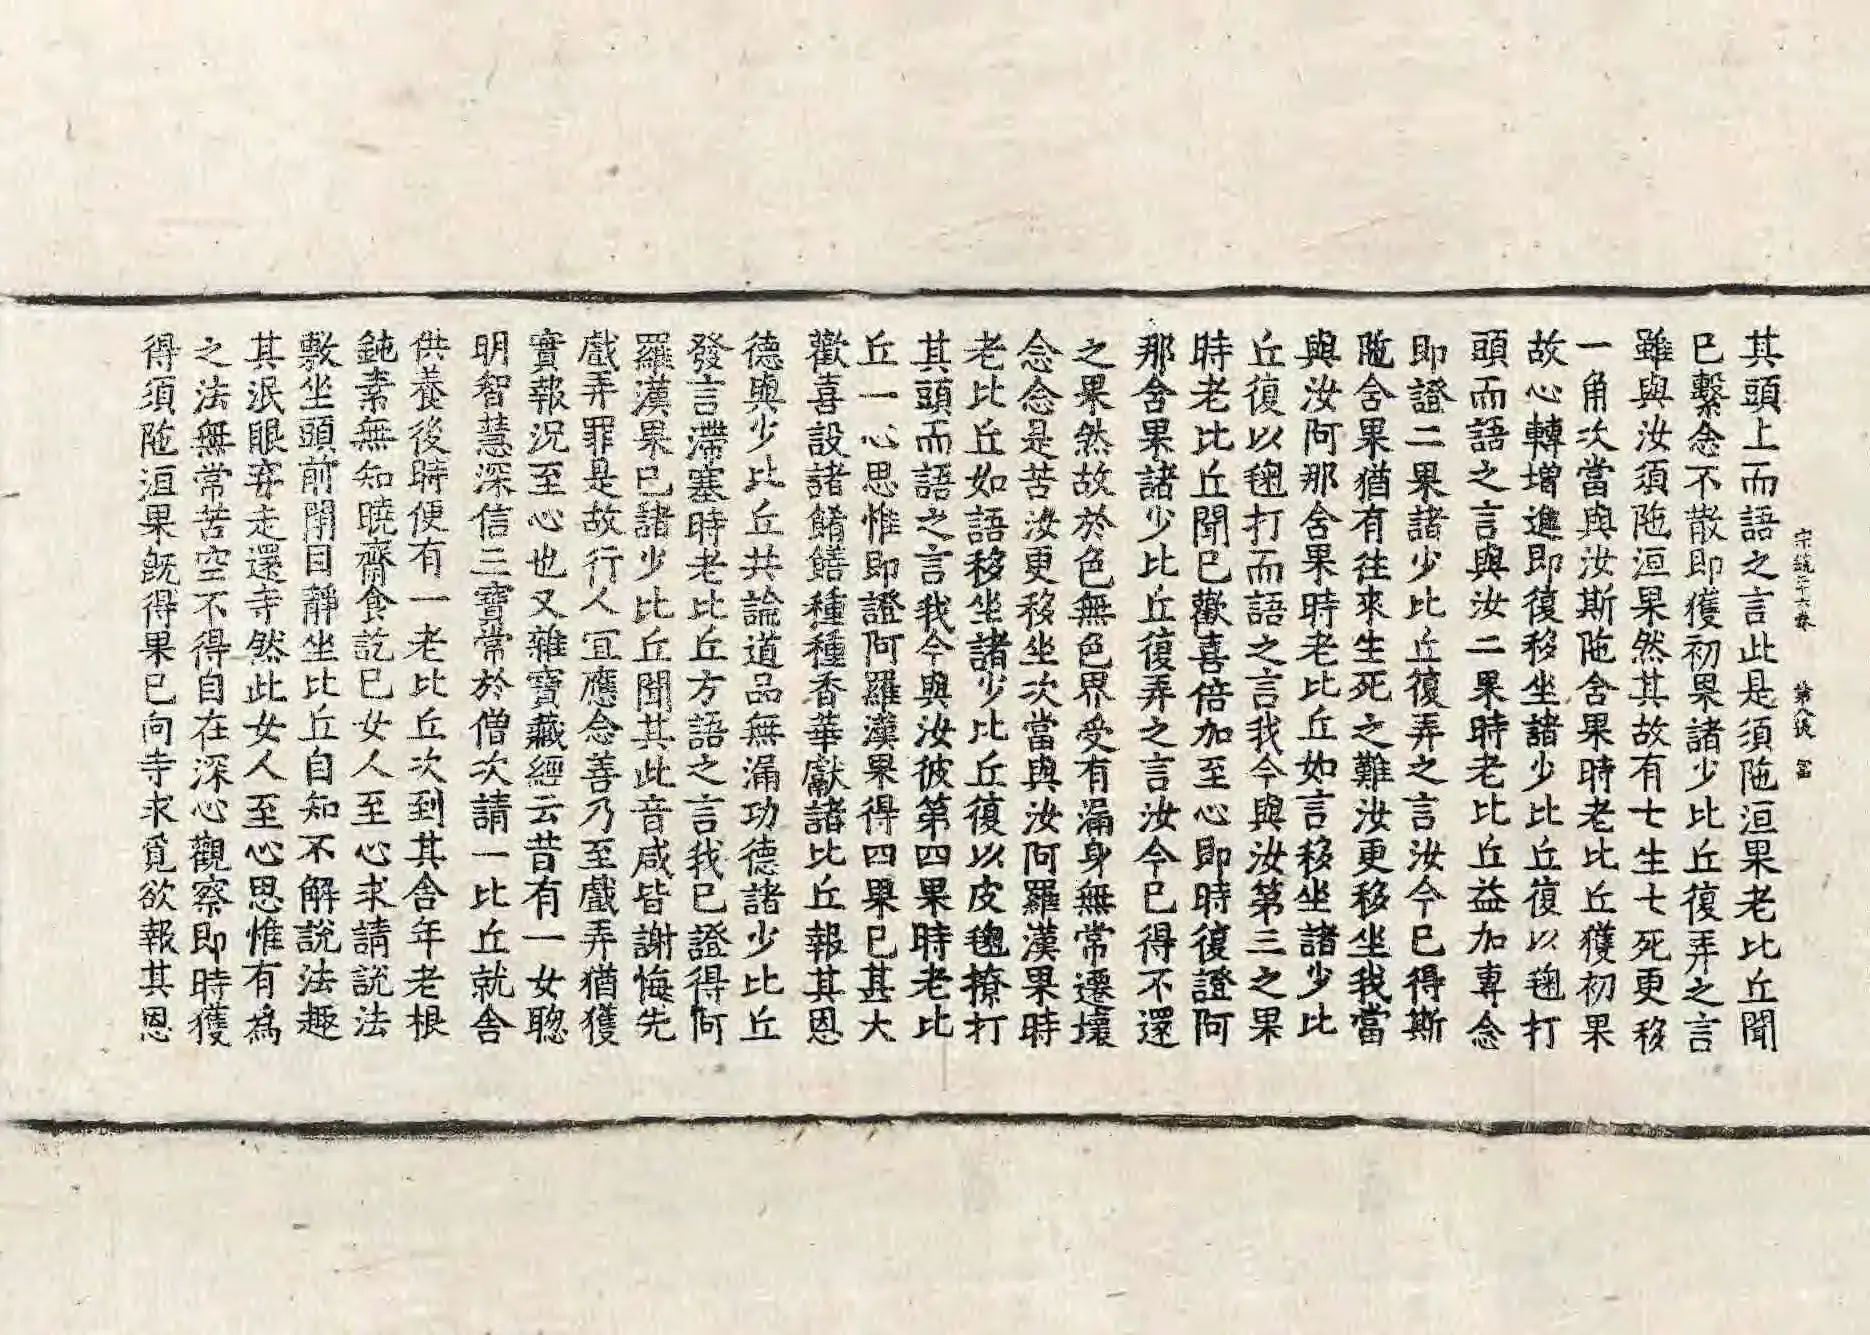 宗鏡二十六卷 第八張 富
其頭上而語之言此是須陁洹果老比丘聞
已繫念不散即獲初果諸少比丘復弄之言
雖與汝須陁洹果然其故有七生七死更移
一角次當與汝斯陁舍果時老比丘獲初果
故心轉增進即復移坐諸少比丘復以毱打
頭而語之言與汝二果時老比丘益加專念
即證二果諸少比丘復弄之言汝今已得斯
陁舍果猶有往來生死之難汝更移坐我當
與汝阿那舍果時老比丘如言移坐諸少比
丘復以毱打而語之言我今與汝第三之果
時老比丘聞已歡喜倍加至心即時復證阿
那舍果諸少比丘復弄之言汝今已得不還
之果然故於色無色界受有漏身無常遷壞
念念是苦汝更移坐次當與汝阿羅漢果時
老比丘如語移坐諸少比丘復以皮毱撩打
其頭而語之言我今與汝彼第四果時老比
丘一心思惟即證阿羅漢果得四果已甚大
歡喜設諸餚饍種種香華獻諸比丘報其恩
德與少比丘共論道品無漏功德諸少比丘
發言滯塞時老比丘方語之言我已證得阿
羅漢果已諸少比丘聞其此音咸皆謝悔先
戲弄罪是故行人宜應念善乃至戲弄猶獲
實報況至心也又雜寶藏經云昔有一女聰
明智慧深信三寶常於僧次請一比丘就舍
供養後時便有一老比丘次到其舍年老根
鈍素無知曉齋食訖已女人至心求請說法
敷坐頭前閉目靜坐比丘自知不解說法趣
其泯眼弃走還寺然此女人至心思惟有為
之法無常苦空不得自在深心觀察即時獲
得須陁洹果旣得果已向寺求覓欲報其恩